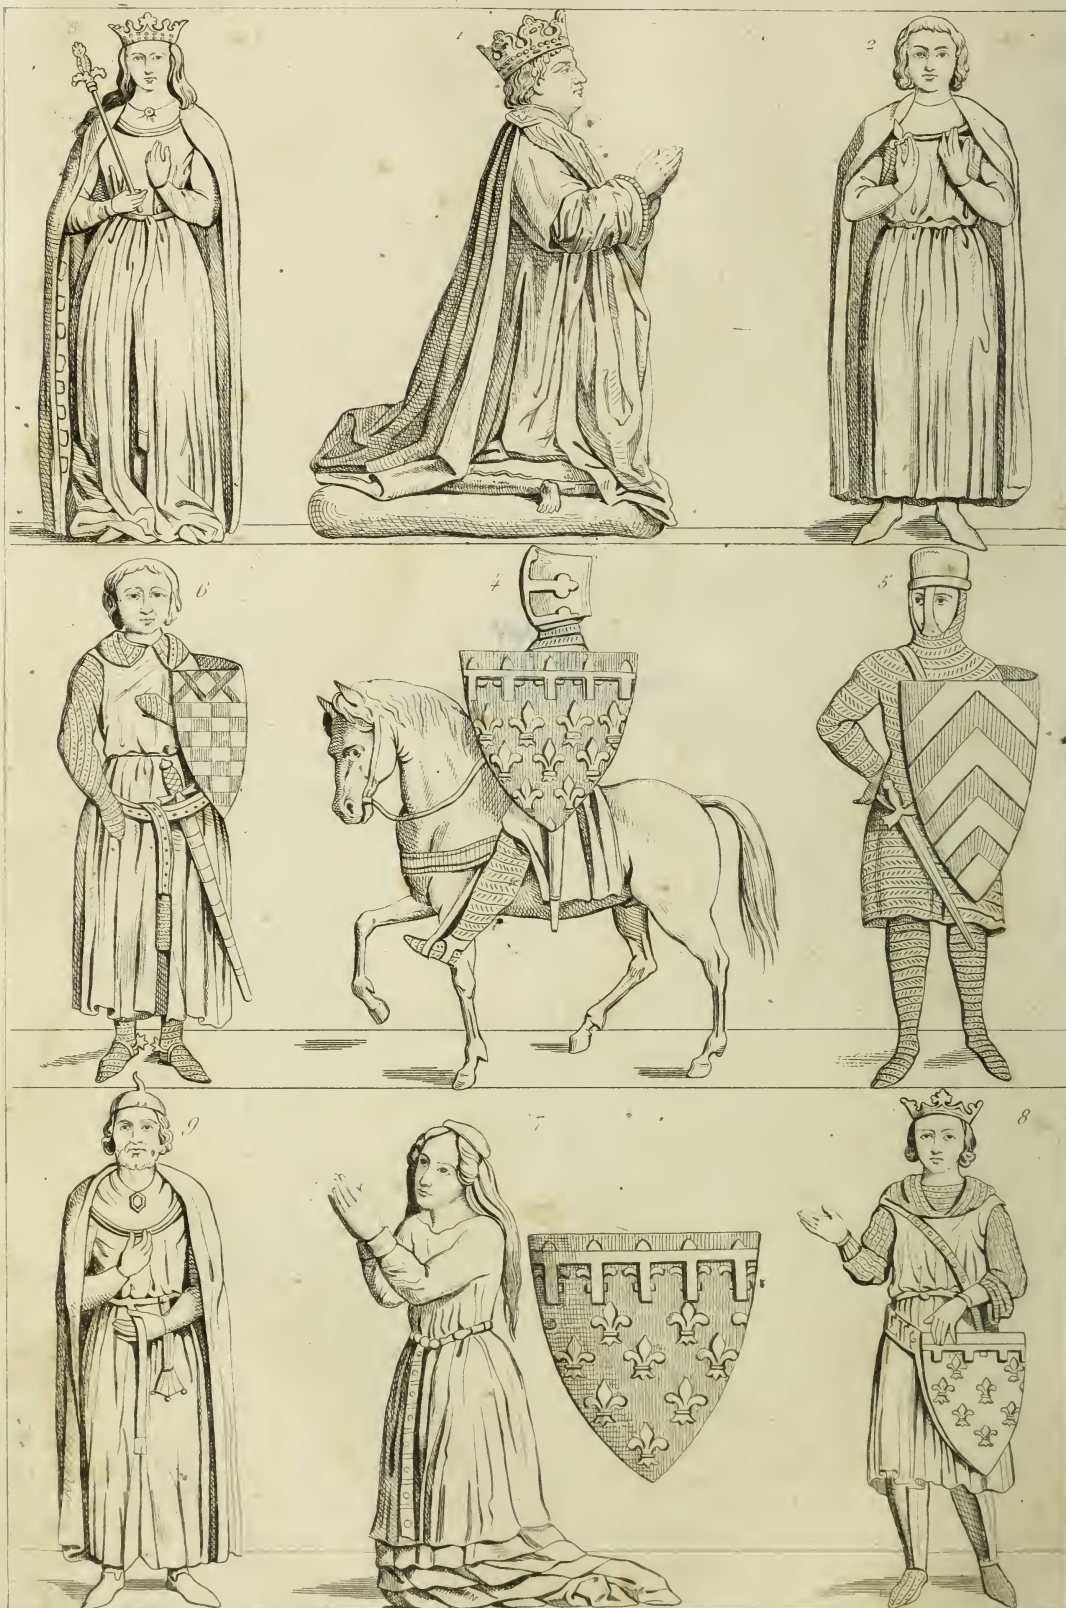 3 1 2
6 4 5
9 7 8